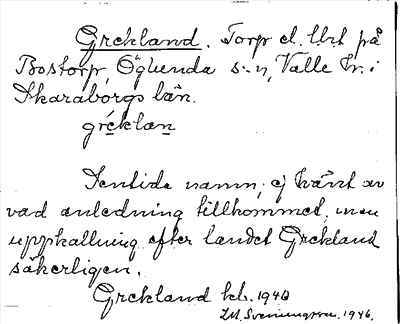 Grekland. Torp el. lht på
Bostorp, Öglunda s:n, Valle hr. i
Skaraborgs län.
greklan
Sentida namn, ej känt av
vad anledning tillkommet, men
uppkallning efter landet Grekland
säkerligen.
Grekland kbl. 1940
Sveningsson. 1946.